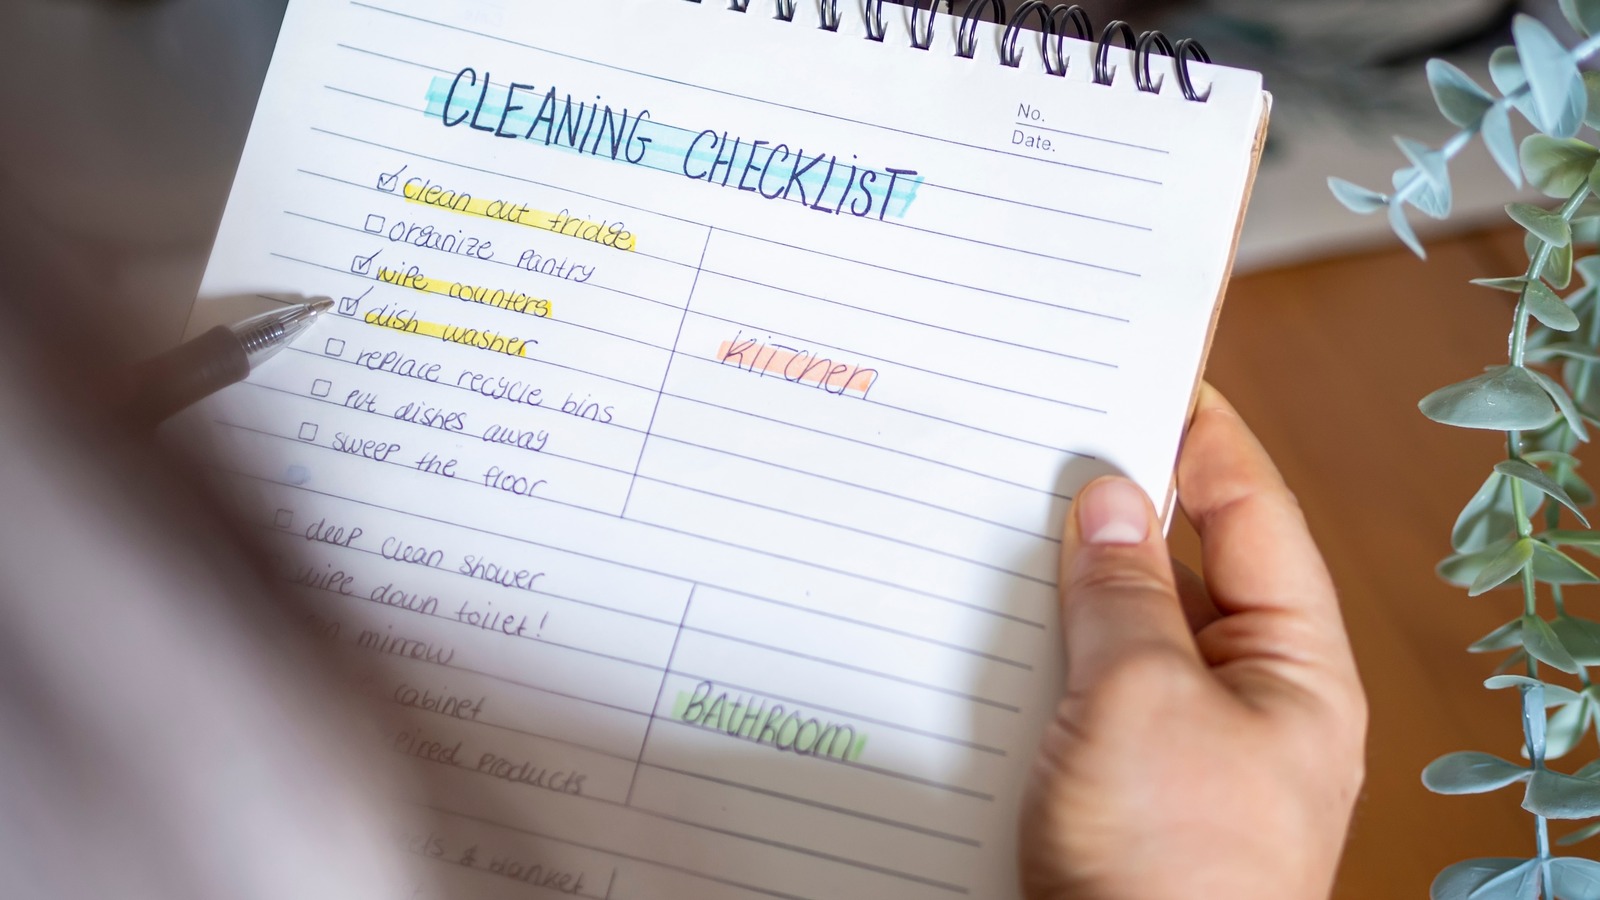 No.
Date.
CLEANiNG CHECKLiST
clean out fridge
organize pantry
wipe counters
dish washer
replace recycle bins
put dishes away
sweep the floor
KiTchen
deep clean shower
wipe down toilet!
mirrow
cabinet
products
BAtHROOM
& blanket